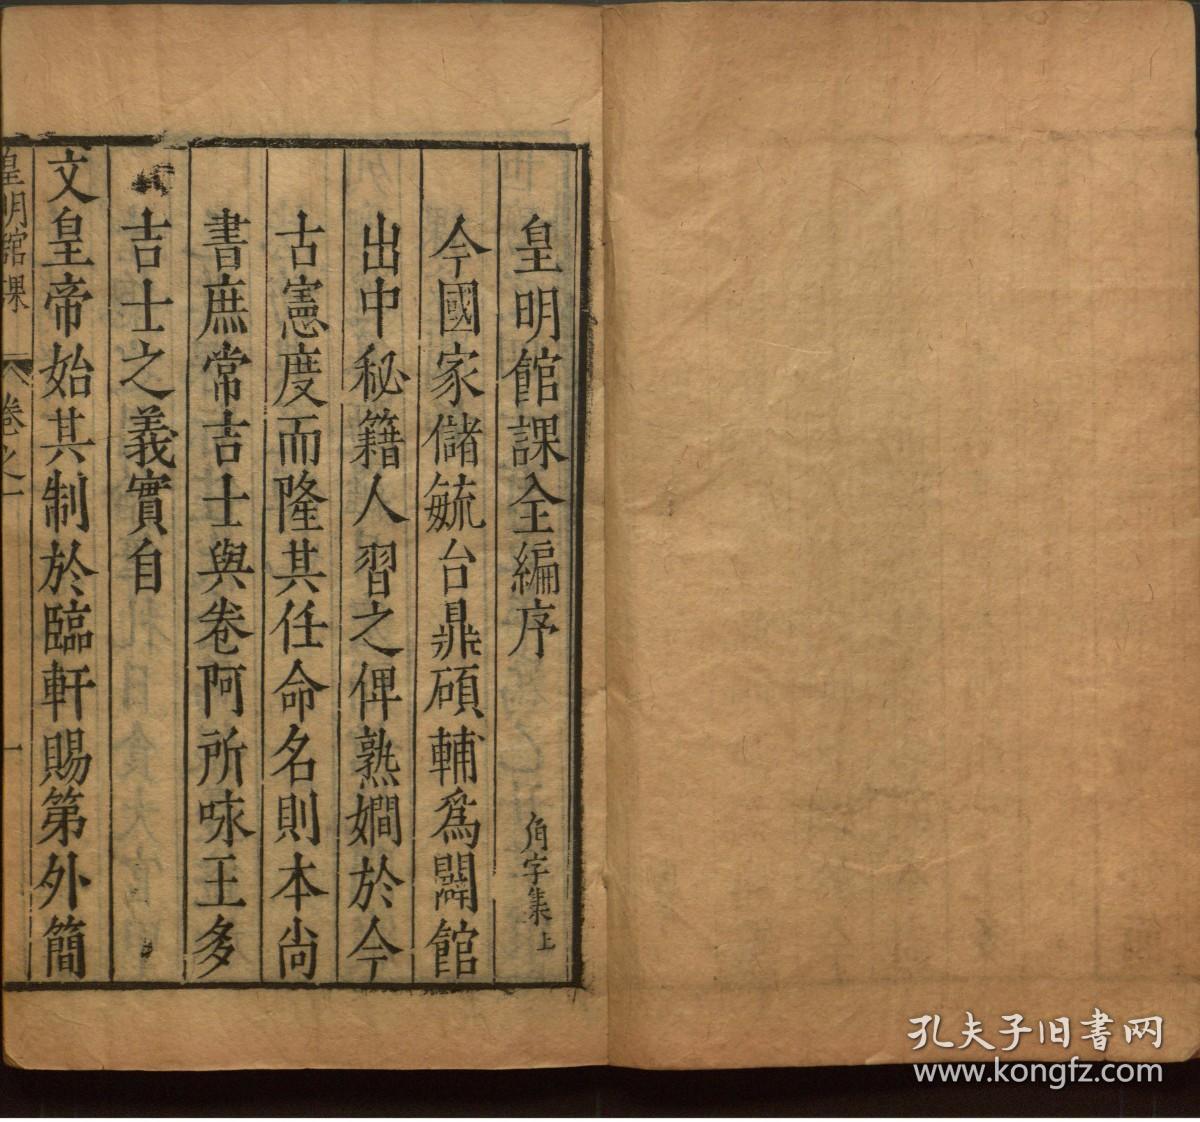 皇明館課全編序
角字集上
今國家儲毓台鼎碩輔爲闢館
出中秘籍人習之俾熟嫺於今
古憲度而隆其任命名則本尚
書庶常吉士與卷阿所咏王多
吉士之義實自
文皇帝始其制於臨軒賜第外簡
皇明館課 卷之一 一
孔夫子旧书网
www.kongfz.com